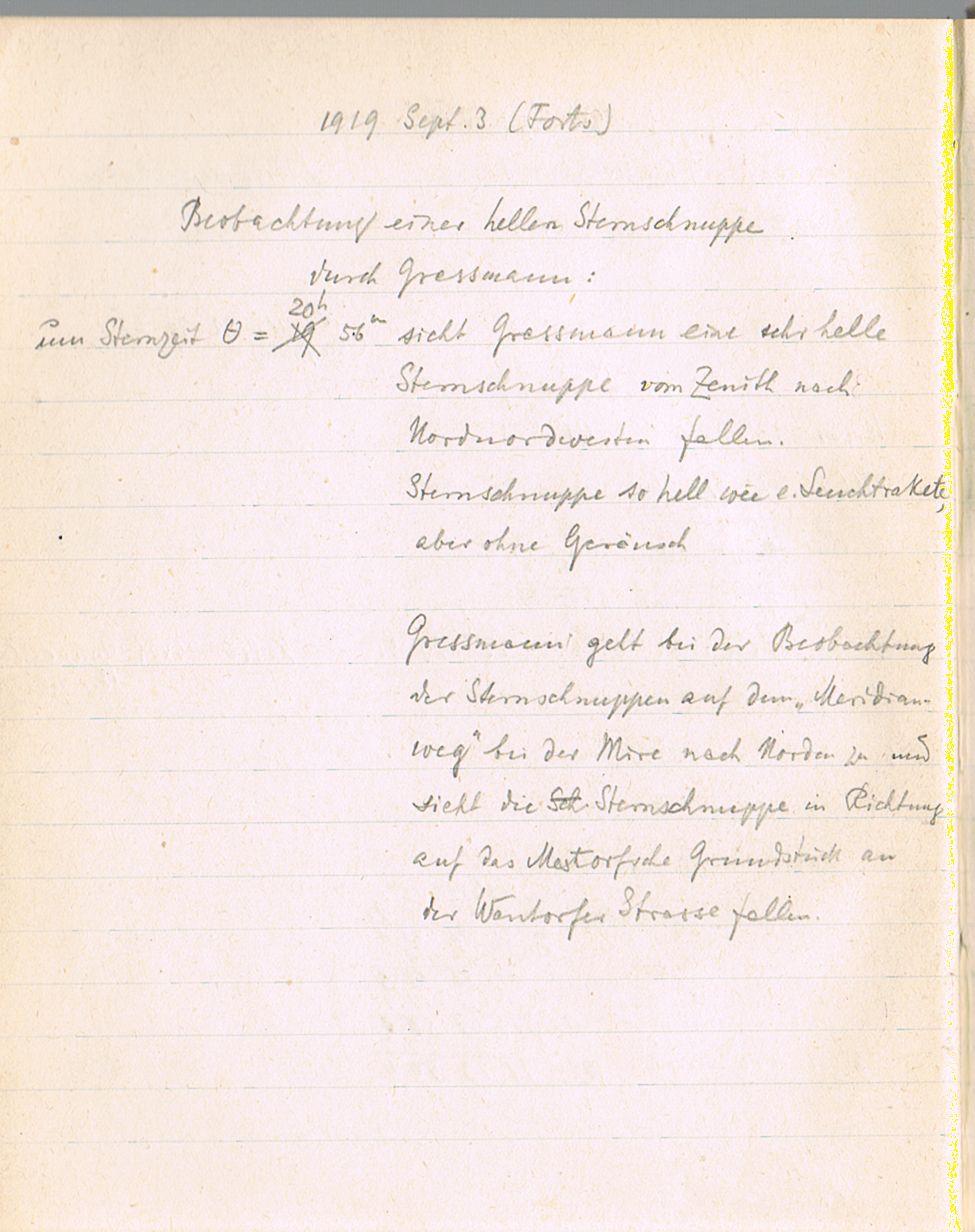 1919 Sept. 3 (Forts)
Beobachtung einer hellen Sternschnuppe
durch Gressmann:
um Sternzeit θ = 20h 19 56m sieht Gressmann eine sehr helle
Sternschnuppe vom Zenith nach
Nordnordwesten fallen.
Sternschnuppe so hell wie e. Leuchtrakete,
aber ohne Geräusch
Gressmann geht bei der Beobachtung
der Sternschnuppen auf dem „Meridian-
weg" bei der Mire nach Norden zu und
sieht die Sch. Sternschnuppe in Richtung
auf das Grundstück an
der Wentorfer Strasse fallen.